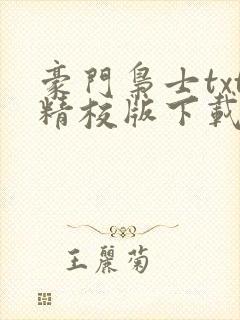 豪門梟士txt
精校版下載
王麗菊